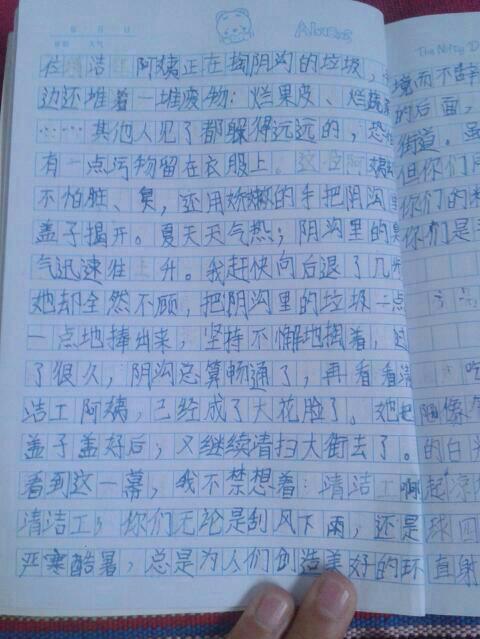 Always
The Notsy D
位清洁工阿姨正在掏阴沟的垃圾,
边还堆着一堆废物:烂果皮、烂蔬菜
……其他人见了都躲得远远的,恐怕
有一点污物留在衣服上。这位阿姨
不怕脏、臭,还用娇嫩的手把阴沟
盖子揭开。夏天天气热;阴沟里的臭
气迅速往上升。我赶快向后退了几步
她却全然不顾,把阴沟里的垃圾一点
一点地捧出来,坚持不懈地掏着,过
了很久,阴沟总算畅通了,再看看清
洁工阿姨,已经成了大花脸了。她把
盖子盖好后;又继续清扫大街去了。
看到这一幕,我不禁想着:清洁工啊
清洁工,你们无论是刮风下雨,还是
严寒酷暑,总是为人们创造美好的环
境而不辞
的后面,
街道。虽
但你们
你们的
你们是
吃
陋像
的白
起凉
球四
直射